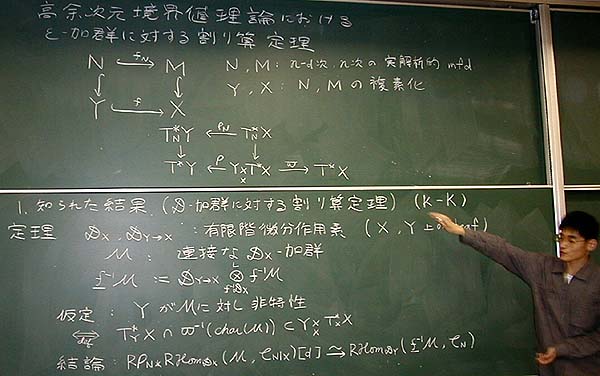 高余次元境界値理論における
ε-加群に対する割り算定理
N f_N→ M N, M : n-d次, n次の実解析的 mfd
Y f→ X Y, X : N, M の複素化
T*_N Y ←ρ_N T*_N X
T*Y ←ρ Y×_X T*X ϖ→ T*X
1. 知られた結果 (𝒟-加群に対する割り算定理) (K-K)
定理 𝒟_X, 𝒟_{Y→X} : 有限階微分作用素 (X, Y 上の
ℳ : 連接な 𝒟_X-加群
f^{-1}ℳ := 𝒟_{Y→X} ⊗^L_{f^{-1}𝒟_X} f^{-1}ℳ
仮定 : Y が ℳ に対し 非特性
⇔ T*_Y X ∩ ϖ^{-1}(char(ℳ)) ⊂ Y×_X T*_X X
結論 : Rρ_{N*} Rℋom_{𝒟_X}(ℳ, 𝒞_{N|X})[d] ≃ Rℋom_{𝒟_Y}(f^{-1}ℳ, 𝒞_N)